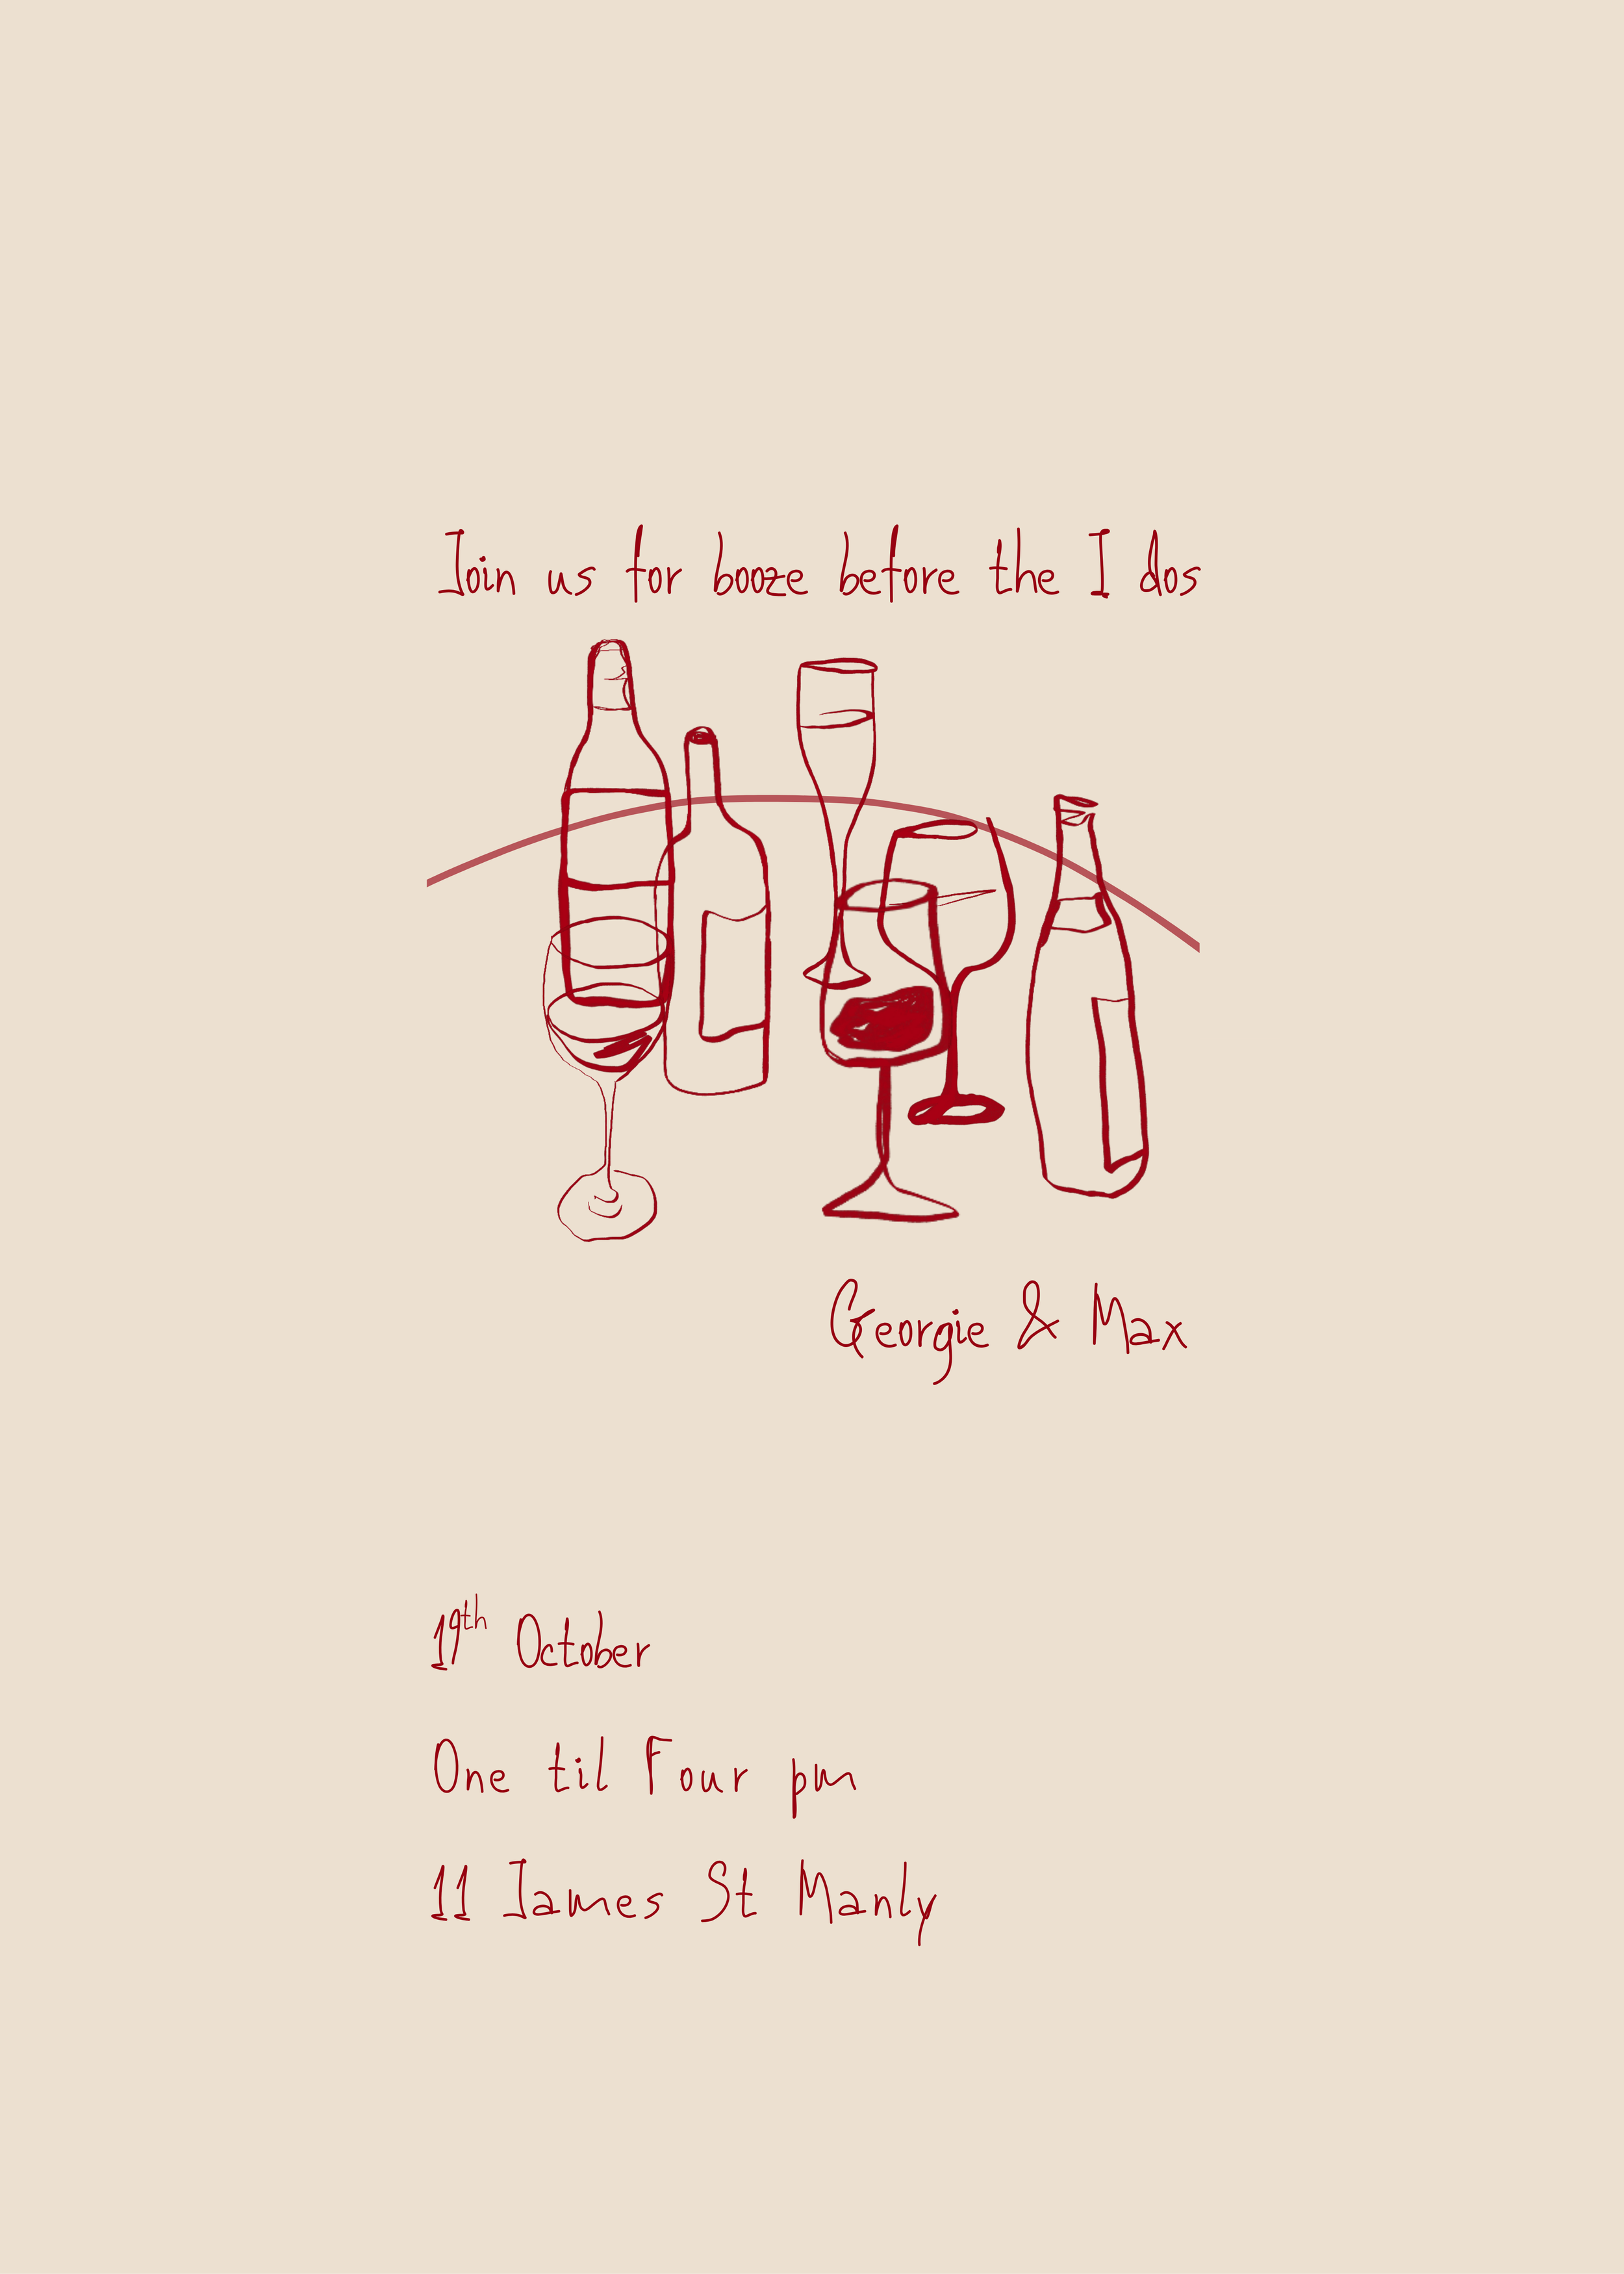 Join us for booze before the I dos
Georgie & Max
19th October
One til Four pm
11 James St Manly